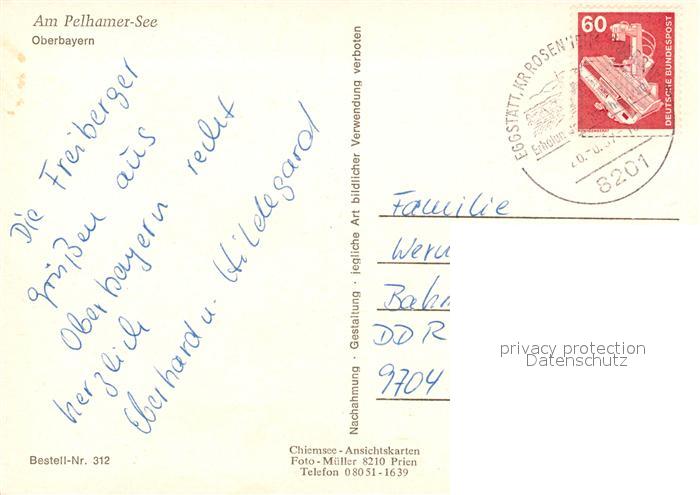 Am Pelhamer-See
Oberbayern
Die Freiberger
grüßen aus
Oberbayern recht
herzlich
Eberhard u. Hildegard
Bestell-Nr. 312
Nachahmung · Gestaltung · jegliche Art bildlicher Verwendung verboten
Chiemsee-Ansichtskarten
Foto-Müller 8210 Prien
Telefon 08051-1639
60
DEUTSCHE BUNDESPOST
EGGSTÄTT, KR ROSENHEIM
Erholun
8201
Familie
Wern
Bahn
DDR
9704
privacy protection
Datenschutz